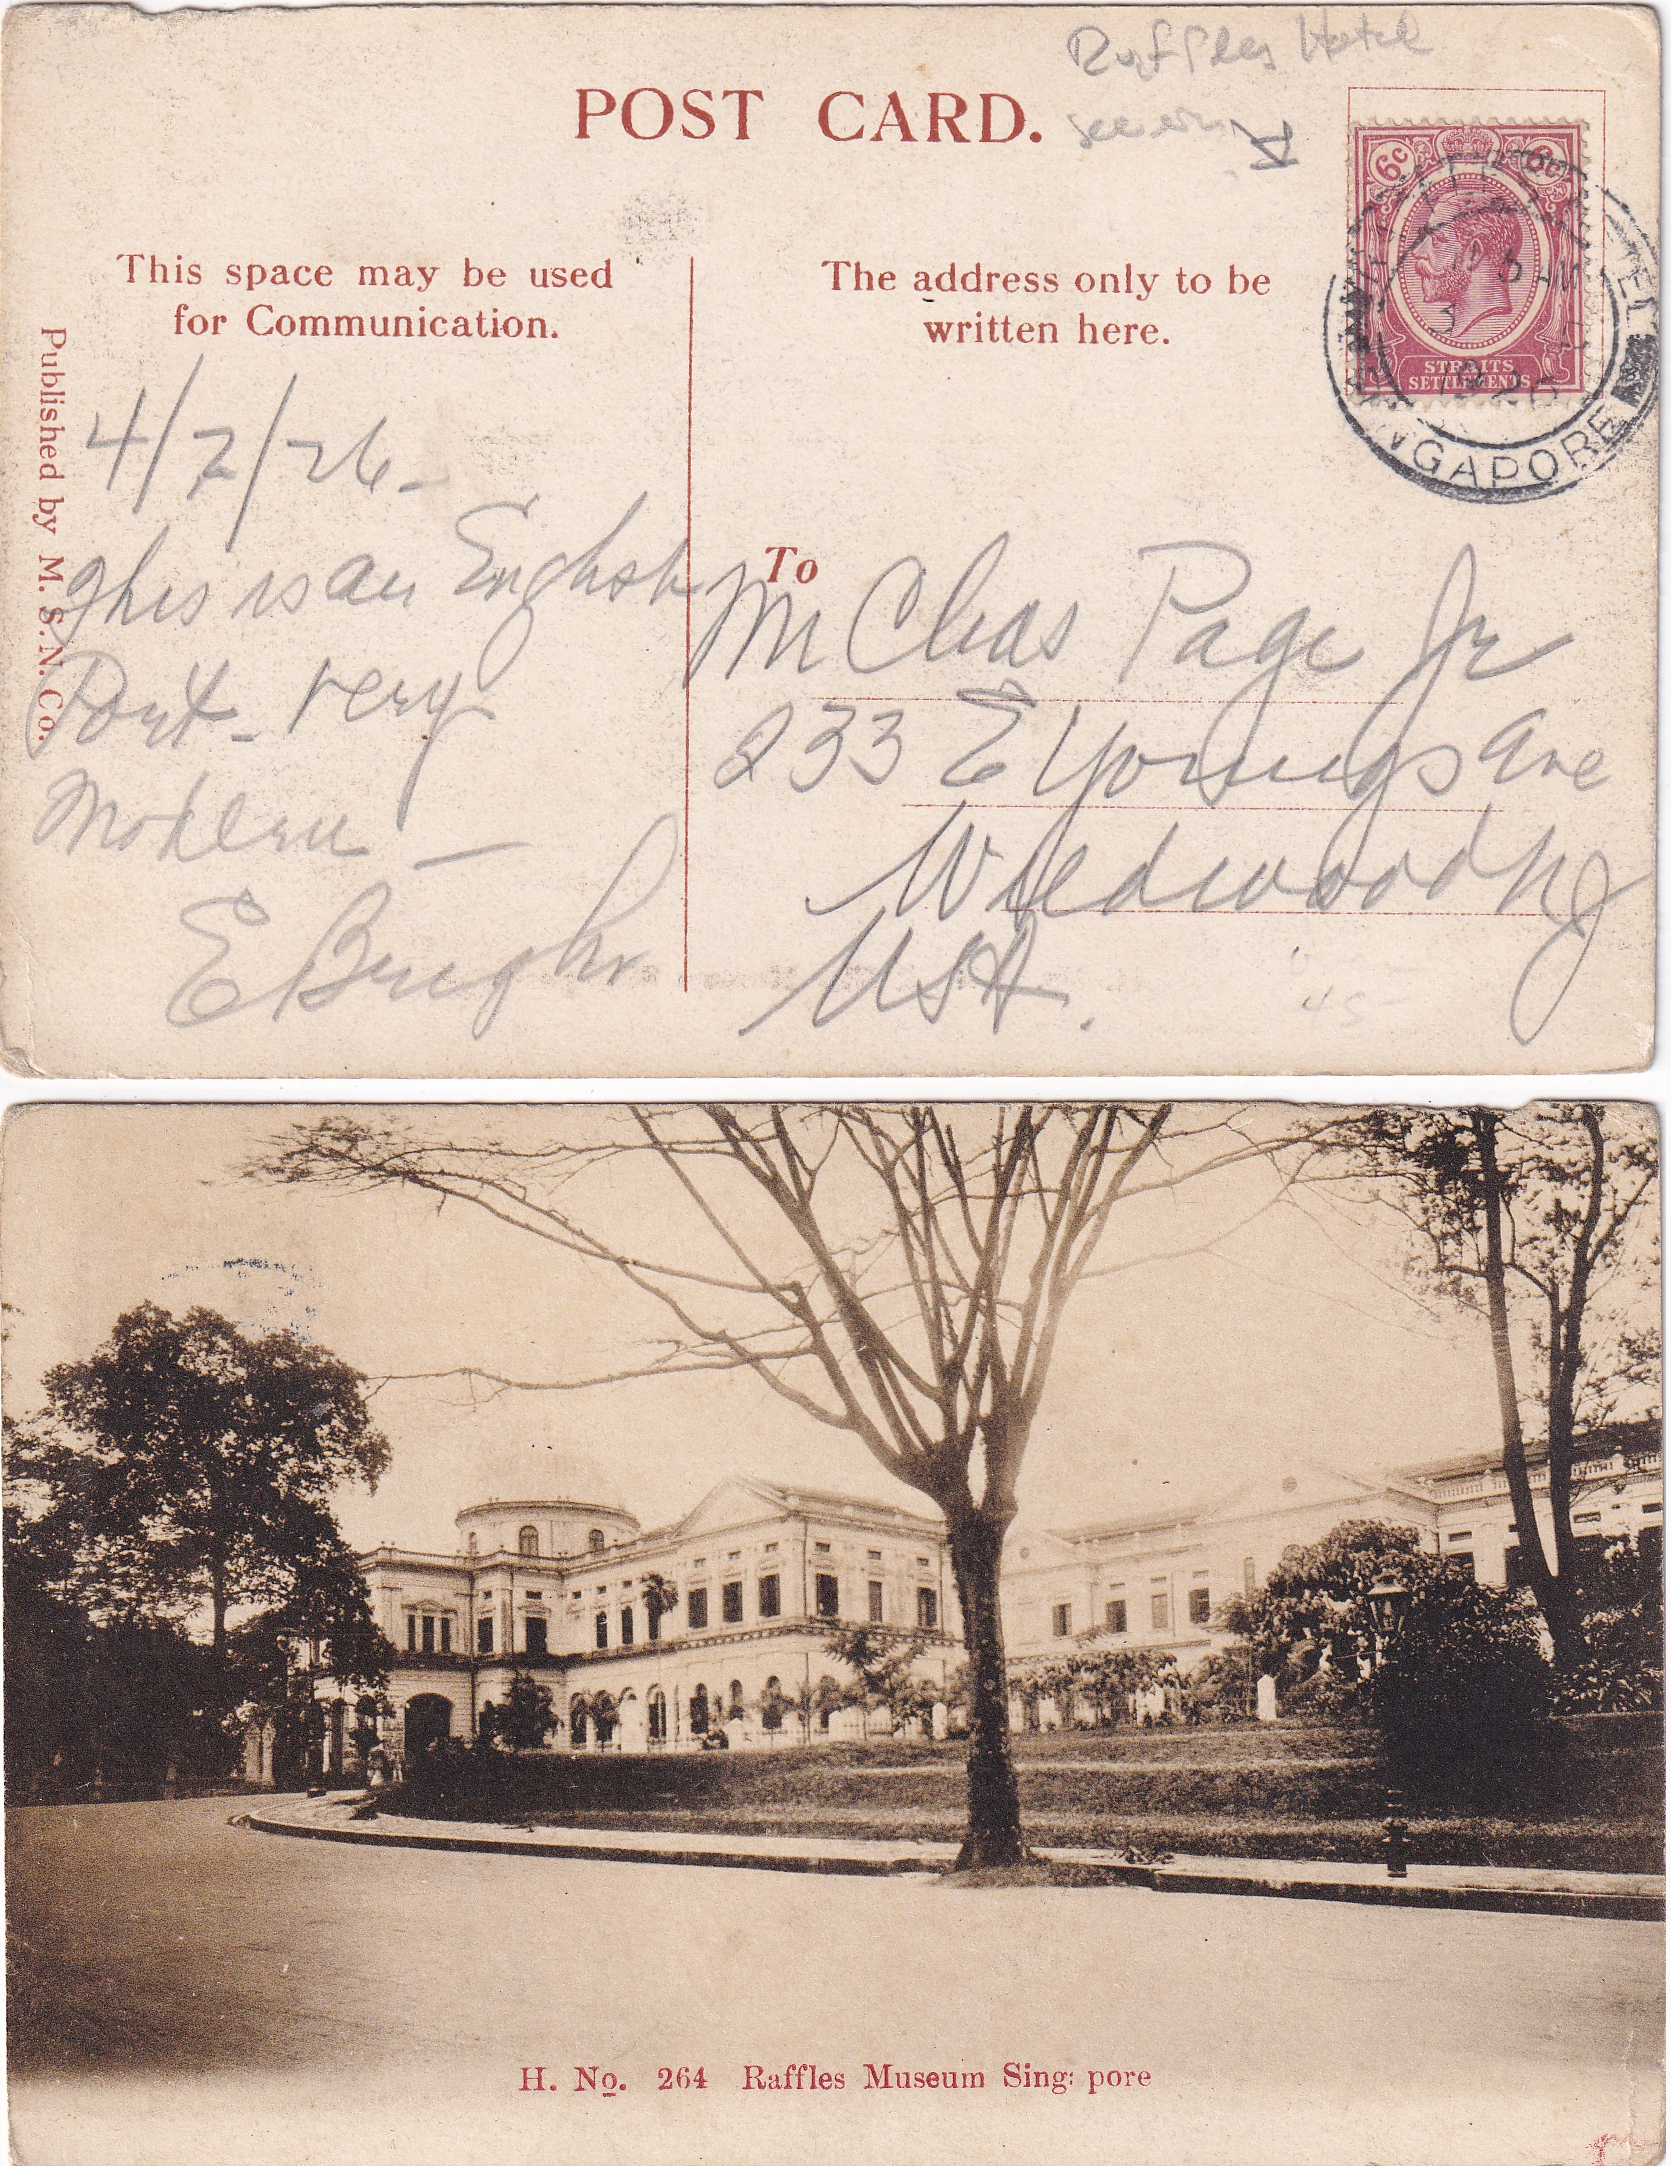 Raffles Hotel
POST CARD.
6c
STRAITS
SETTLEMENTS
1926
SINGAPORE
This space may be used
for Communication.
The address only to be
written here.
Published by M. S. N. Co.
4/2/26 -
This is an English
Port - very
Modern -
To
Mr Chas Page Jr
233 E Youngs Ave
Wildwood NJ
USA.
45-
H. No. 264 Raffles Museum Sing: pore